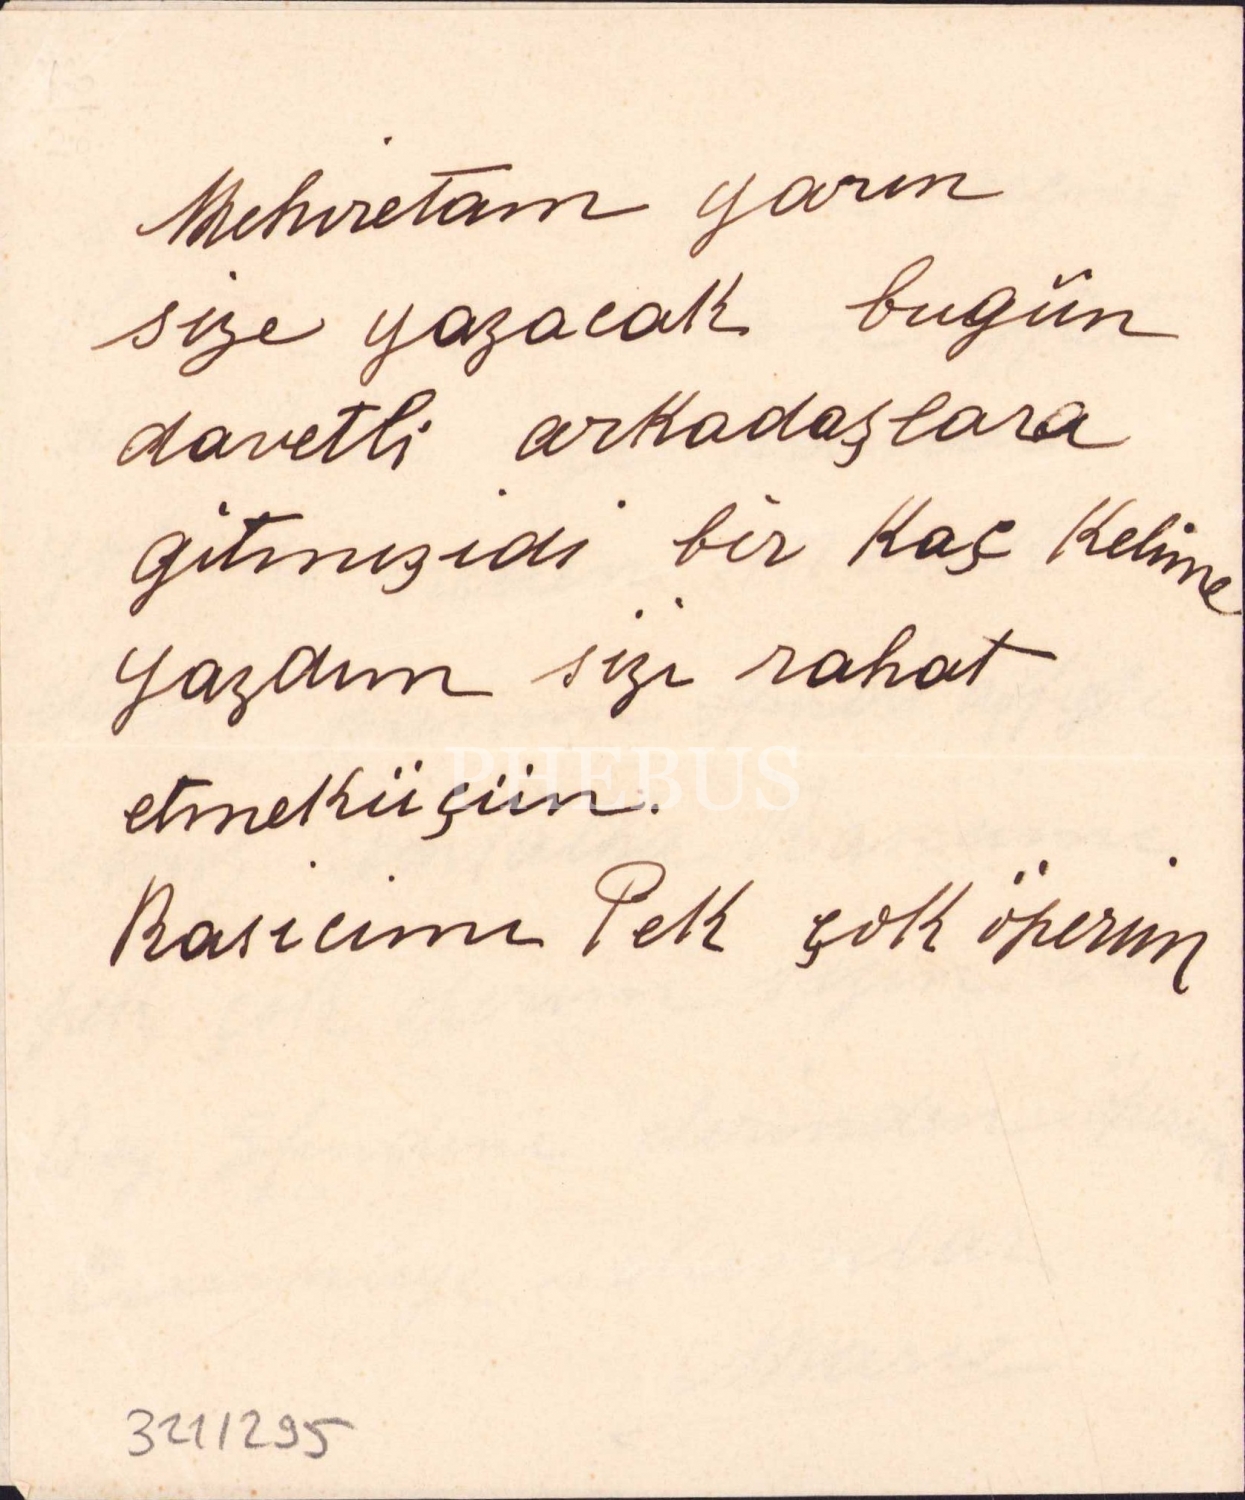 Mehvretam yarın
size yazacak bugün
davetli arkadaşlara
gitmışidi bir Kaç Kelime
yazdım sizi rahat
etmeküçün.
PHEBUS
Rasicimı Pek çok öperim
321/295